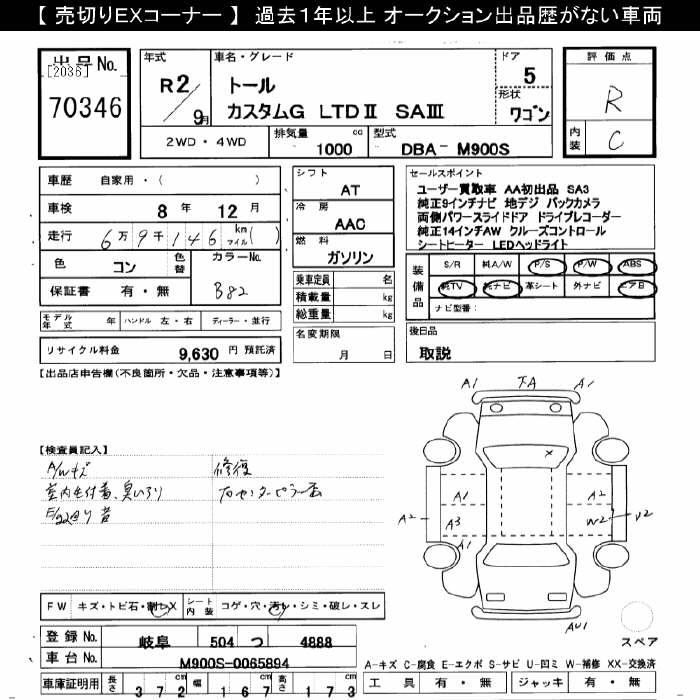 【 売切りEXコーナー 】 過去1年以上 オークション出品歴がない車両
出品No.
[2036]
70346
年式
R2/9月
車名・グレード
トール
カスタムG LTDⅡ SAⅢ
ドア
5
形状
ワゴン
評価点
R
内装
C
2WD・4WD
排気量
1000 cc
型式
DBA- M900S
車歴 自家用・( )
車検 8 年 12 月
走行 6万9千146 km マイル( )
色 コン
色替
カラーNo.
B82
保証書 有・無
シフト
AT
冷房
AAC
燃料
ガソリン
乗車定員 名
積載量 kg
総重量 kg
名変期限
月 日
セールスポイント
ユーザー買取車 AA初出品 SA3
純正9インチナビ 地デジ バックカメラ
両側パワースライドドア ドライブレコーダー
純正14インチAW クルーズコントロール
シートヒーター LEDヘッドライト
装備品
S/R 純A/W P/S P/W ABS
純TV 純ナビ 革シート 外ナビ エアB
ナビ型番:
モデル年式 年 ハンドル 左・右 ディーラー・並行
リサイクル料金 9,630 円 預託済
後日品
取説
【出品店申告欄(不良箇所・欠品・注意事項等)】
【検査員記入】
A/Wキズ
修復
A1 下A A1
A1 A2
A2 A3 W2 U2
A1
AU1
FW キズ・トビ石・割レX
シート内装 コゲ・穴・汚レ・シミ・破レ・スレ
スペア
登録No. 岐阜 504 つ 4888
車台No. M900S-0065894
車庫証明用 長さ 372cm 幅 167cm 高さ 173
A-キズ C-腐食 E-エクボ S-サビ U-凹ミ W-補修 XX-交換済
工具 有・無 ジャッキ 有・無